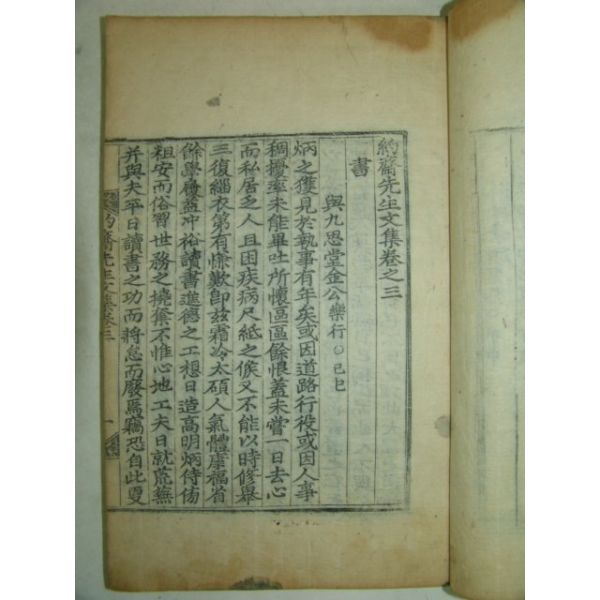 約齋先生文集卷之三
書
與九思堂金公樂行○己巳
炳之獲見於執事有年矣或因道路行役或因人事
稠擾率未能畢吐所懷區區餘悵蓋未嘗一日去心
而私居乏人且困疾病尺紙之候又不能以時修擧
三復緇衣第有慊歎卽玆霜冷太碩人氣體康福省
餘學履益冲裕讀書進德之工想日造高明炳侍傍
粗安而俗習世務之撓奪不惟心地工夫日就荒蕪
幷與夫平日讀書之功而將怠而廢焉竊恐自此夏
約齋先生文集卷三
一